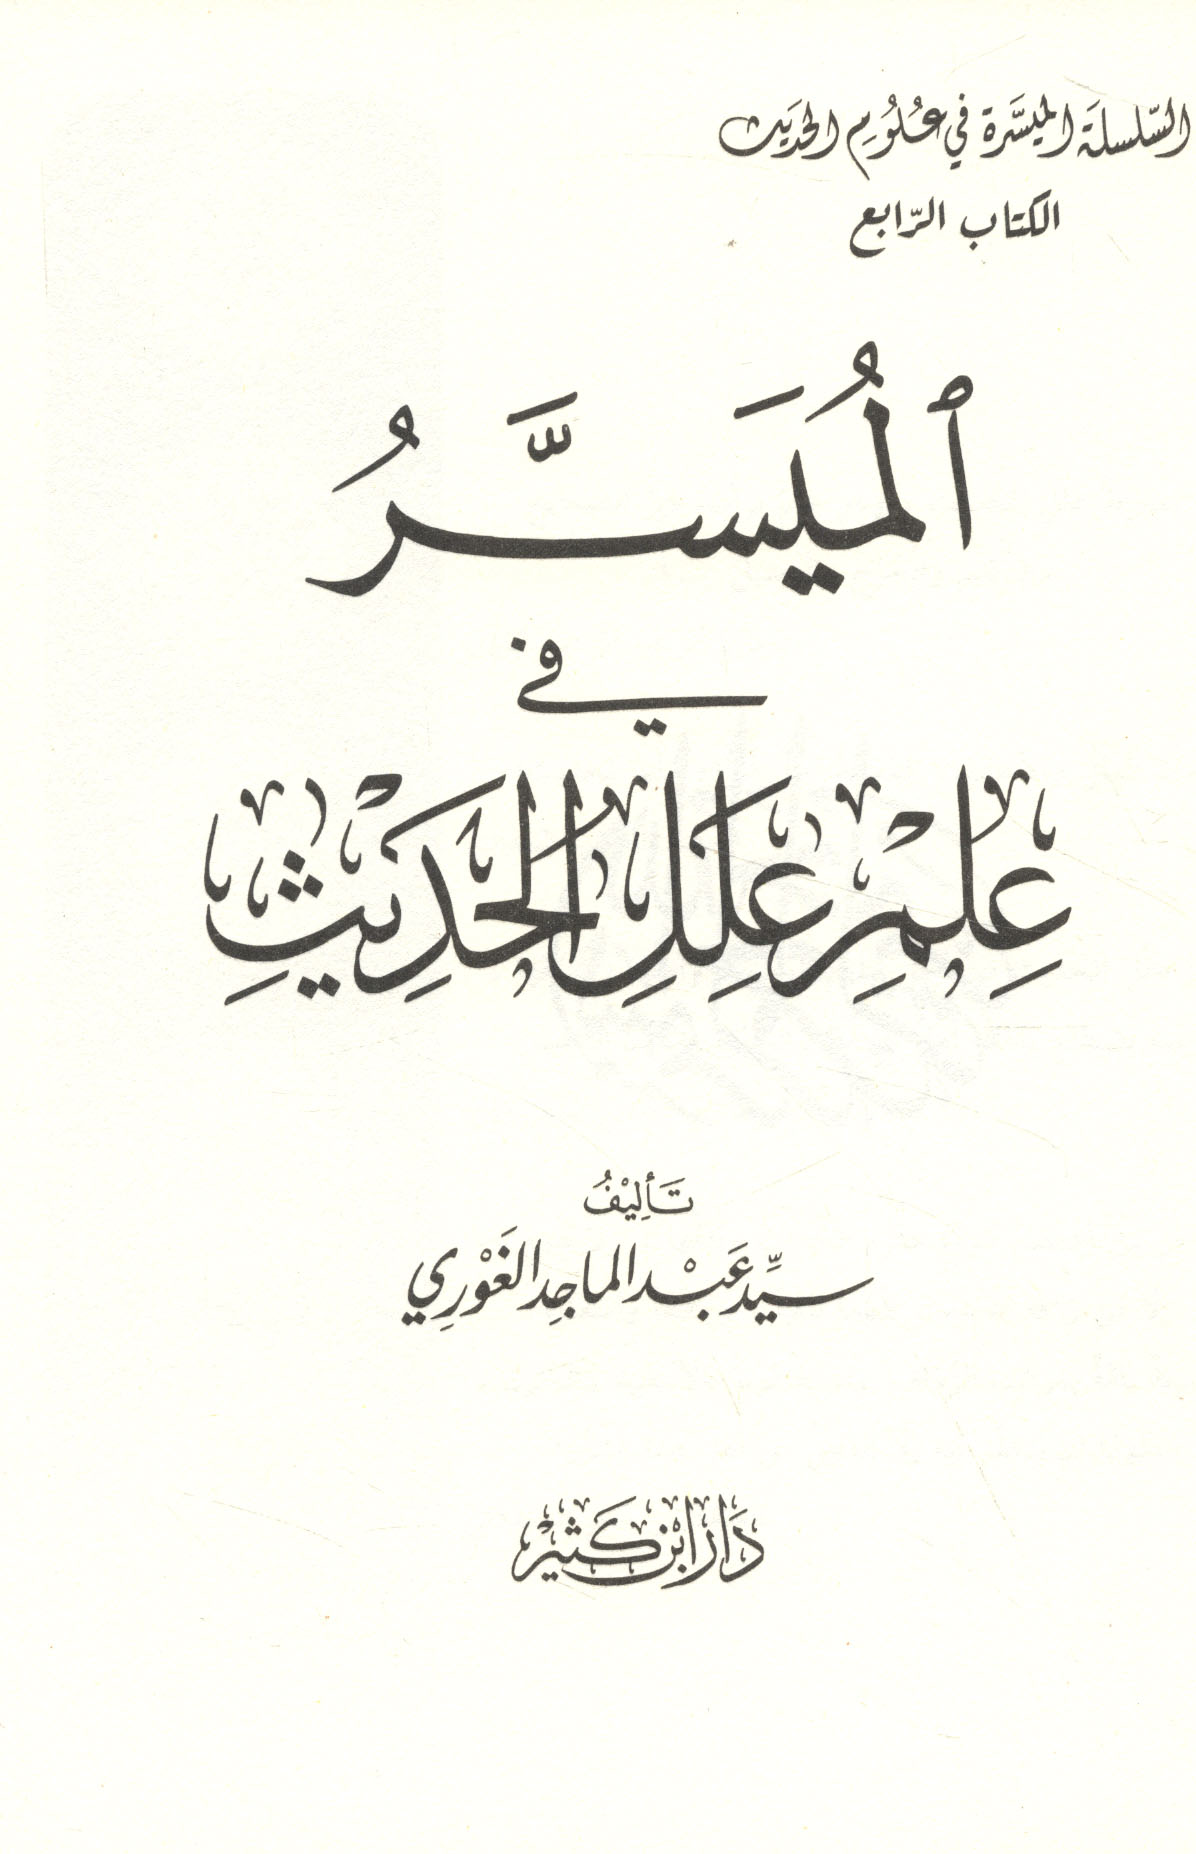 السّلسلة الميسَّرة في عُلُومِ الحديث
الكتاب الرّابع
ٱلمُيَسَّرُ
في
عِلْمِ عِلَلِ الحَدِيْثِ
تَأْلِيْفُ
سيِّد عَبْد الماجِد الغَوْرِي
دَار ابْن كَثِيْر